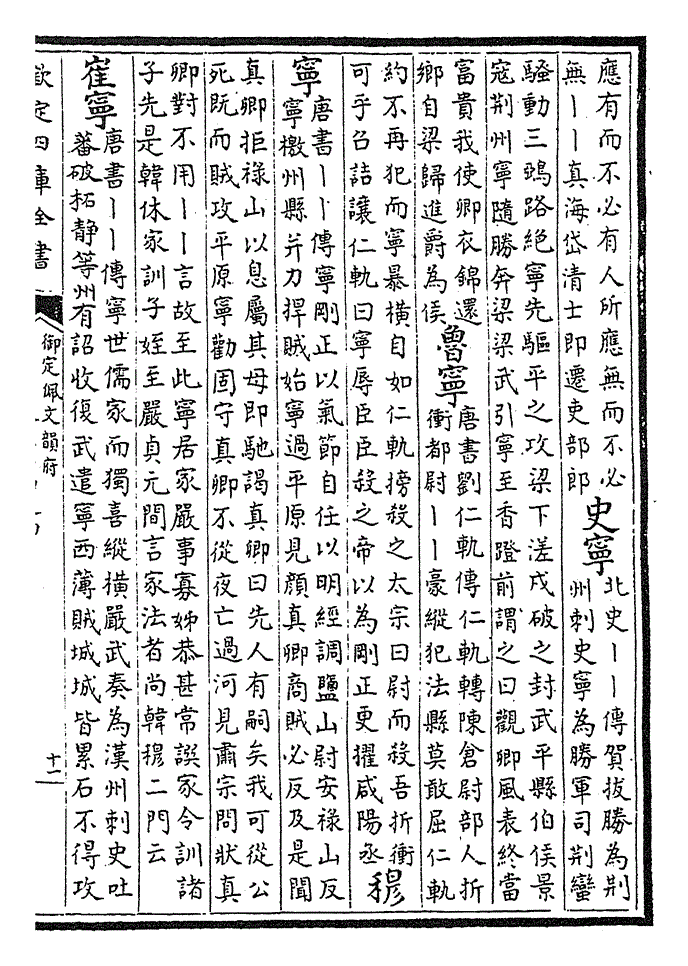 應有而不必有人所應無而不必
無丨丨真海岱清士即遷吏部郎
史寧
北史丨丨傳賀拔勝為荆
州刺史寧為勝軍司荆蠻
騷動三鵶路絶寧先驅平之攻梁下溠戍破之封武平縣伯侯景
寇荆州寧隨勝奔梁梁武引寧至香蹬前謂之曰觀卿風表終當
富貴我使卿衣錦還
鄉自梁歸進爵為侯
魯寧
唐書劉仁軌傳仁軌轉陳倉尉部人折
衝都尉丨丨豪縱犯法縣莫敢屈仁軌
約不再犯而寧暴橫自如仁軌搒殺之太宗曰尉而殺吾折衝
可乎召詰讓仁軌曰寧辱臣臣殺之帝以為剛正更擢咸陽丞
穆
寧
唐書丨丨傳寧剛正以氣節自任以明經調鹽山尉安祿山反
寧檄州縣并力捍賊始寧過平原見顔真卿商賊必反及是聞
真卿拒祿山以息屬其母即馳謁真卿曰先人有嗣矣我可從公
死既而賊攻平原寧勸固守真卿不從夜亡過河見肅宗問狀真
卿對不用丨丨言故至此寧居家嚴事寡姊恭甚常譔家令訓諸
子先是韓休家訓子姪至嚴貞元間言家法者尚韓穆二門云
崔寧
唐書丨丨傳寧世儒家而獨喜縱橫嚴武奏為漢州刺史吐
蕃破拓静等州有詔收復武遣寧西薄賊城城皆累石不得攻
欽定四庫全書
御定佩文韻府
十一